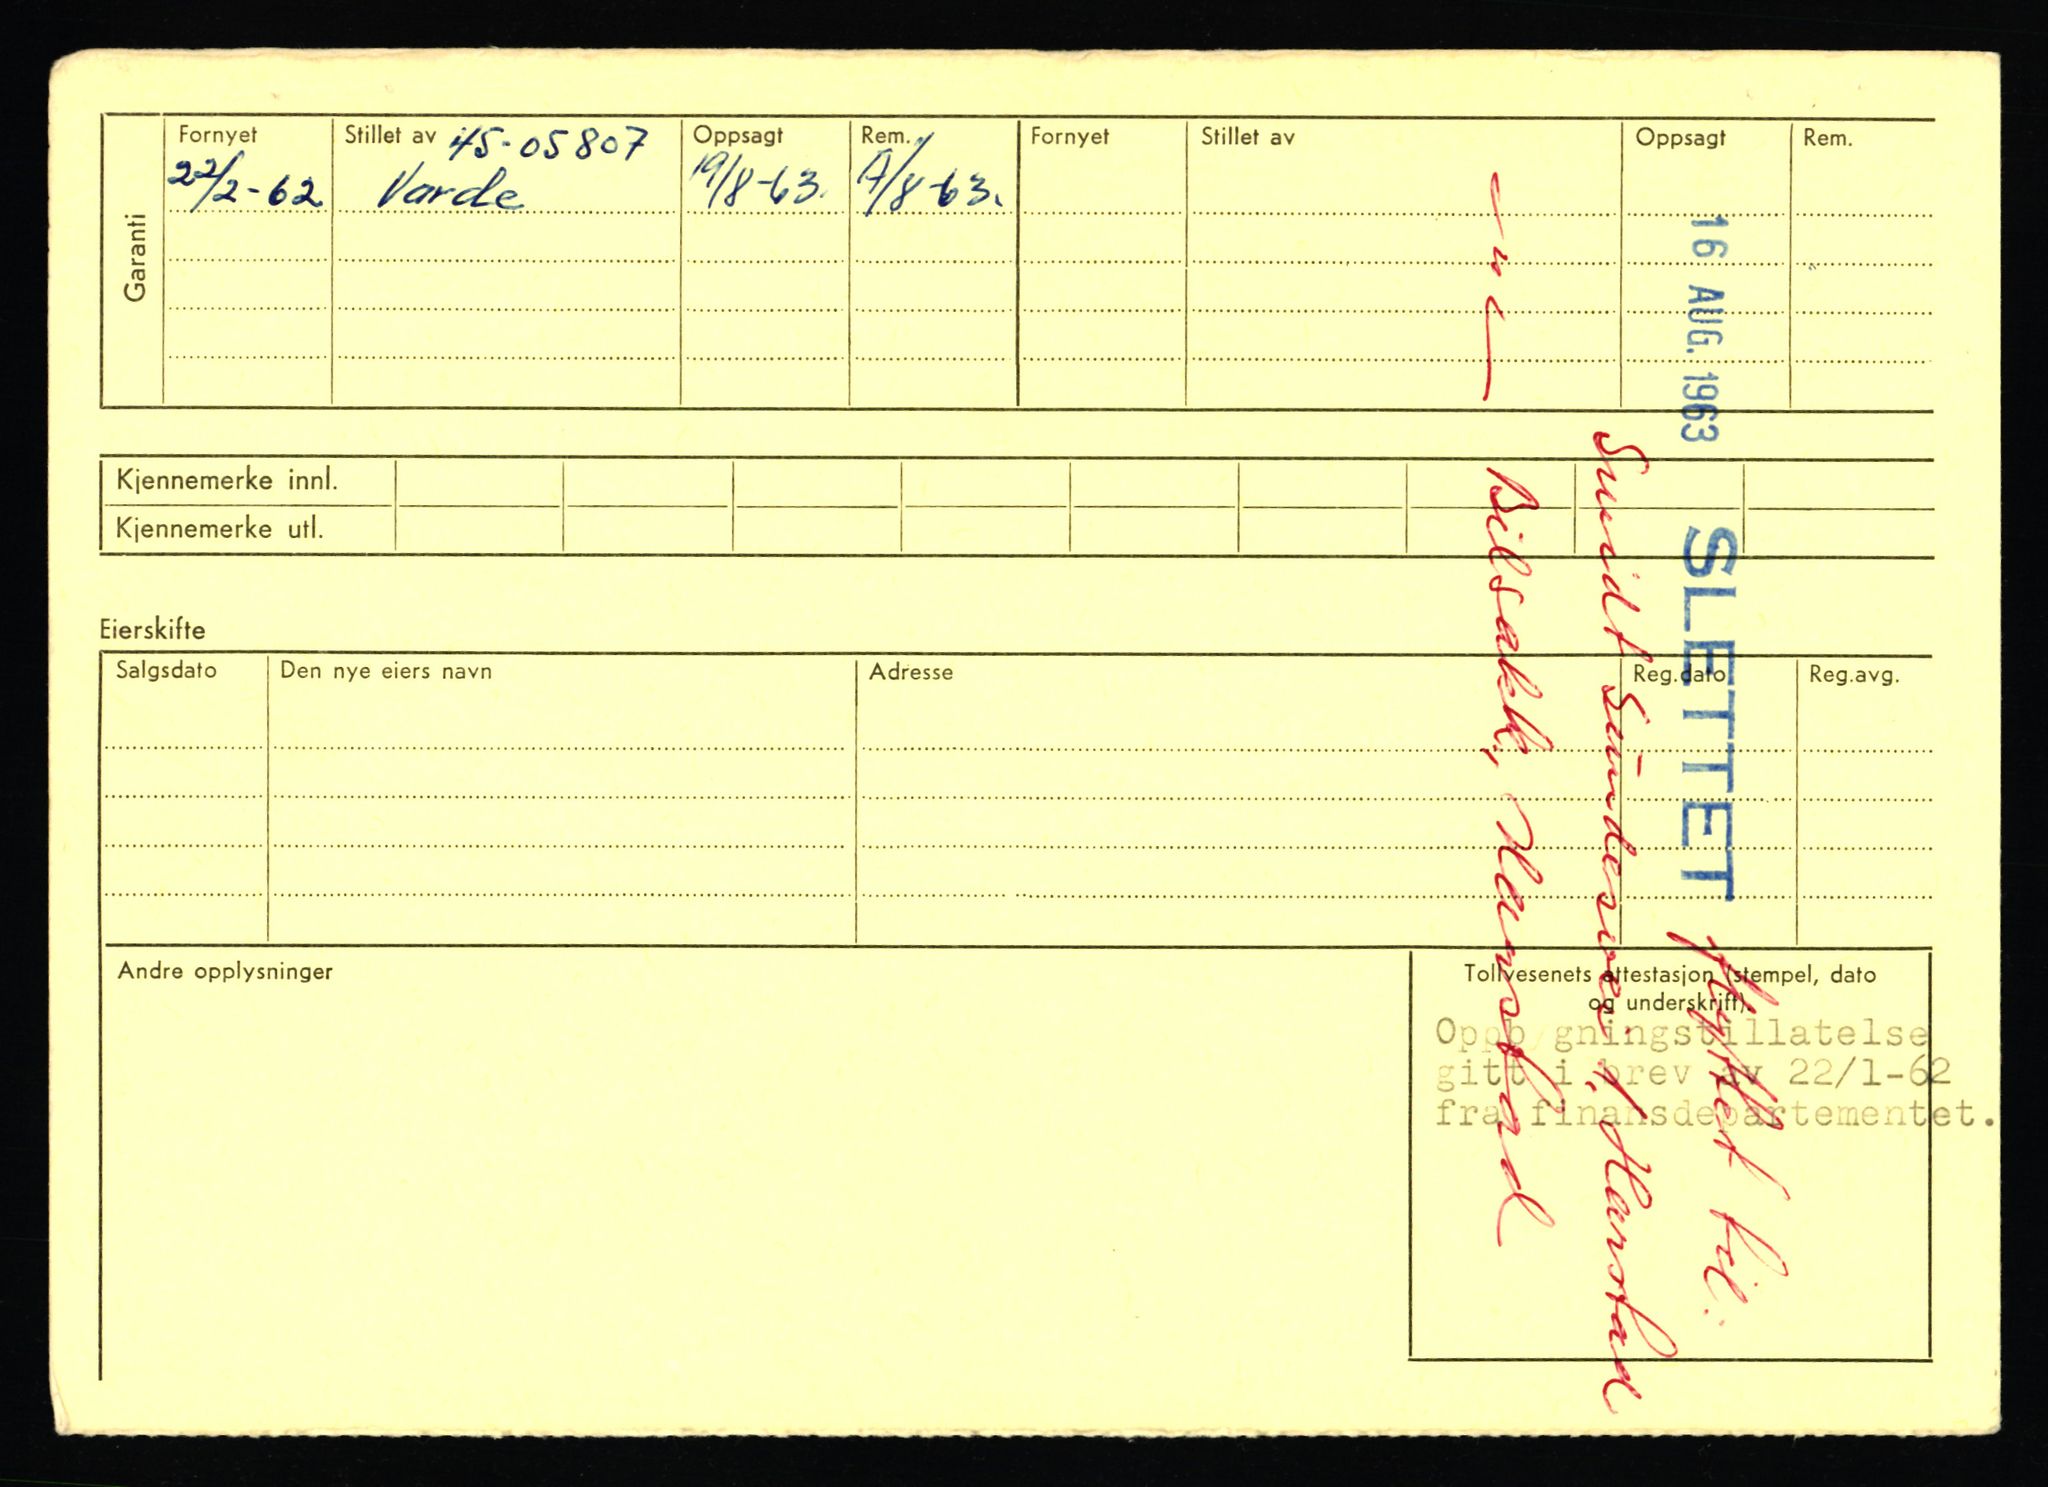 Garanti
Fornyet Stillet av 45-05807 Oppsagt Rem. Fornyet Stillet av Oppsagt Rem.
22/2-62 Varde 19/8-63. /8-63.
Kjennemerke innl.
Kjennemerke utl.
Eierskifte
Salgsdato Den nye eiers navn Adresse Reg.dato Reg.avg.
Andre opplysninger
Tollvesenets attestasjon (stempel, dato
og underskrift).
Oppb gningstillatelse
gitt i brev av 22/1-62
fra finansdepartementet.
16 AUG. 1963 SLETTET flyttet til:
Harstad
Bilsakk, Harstad